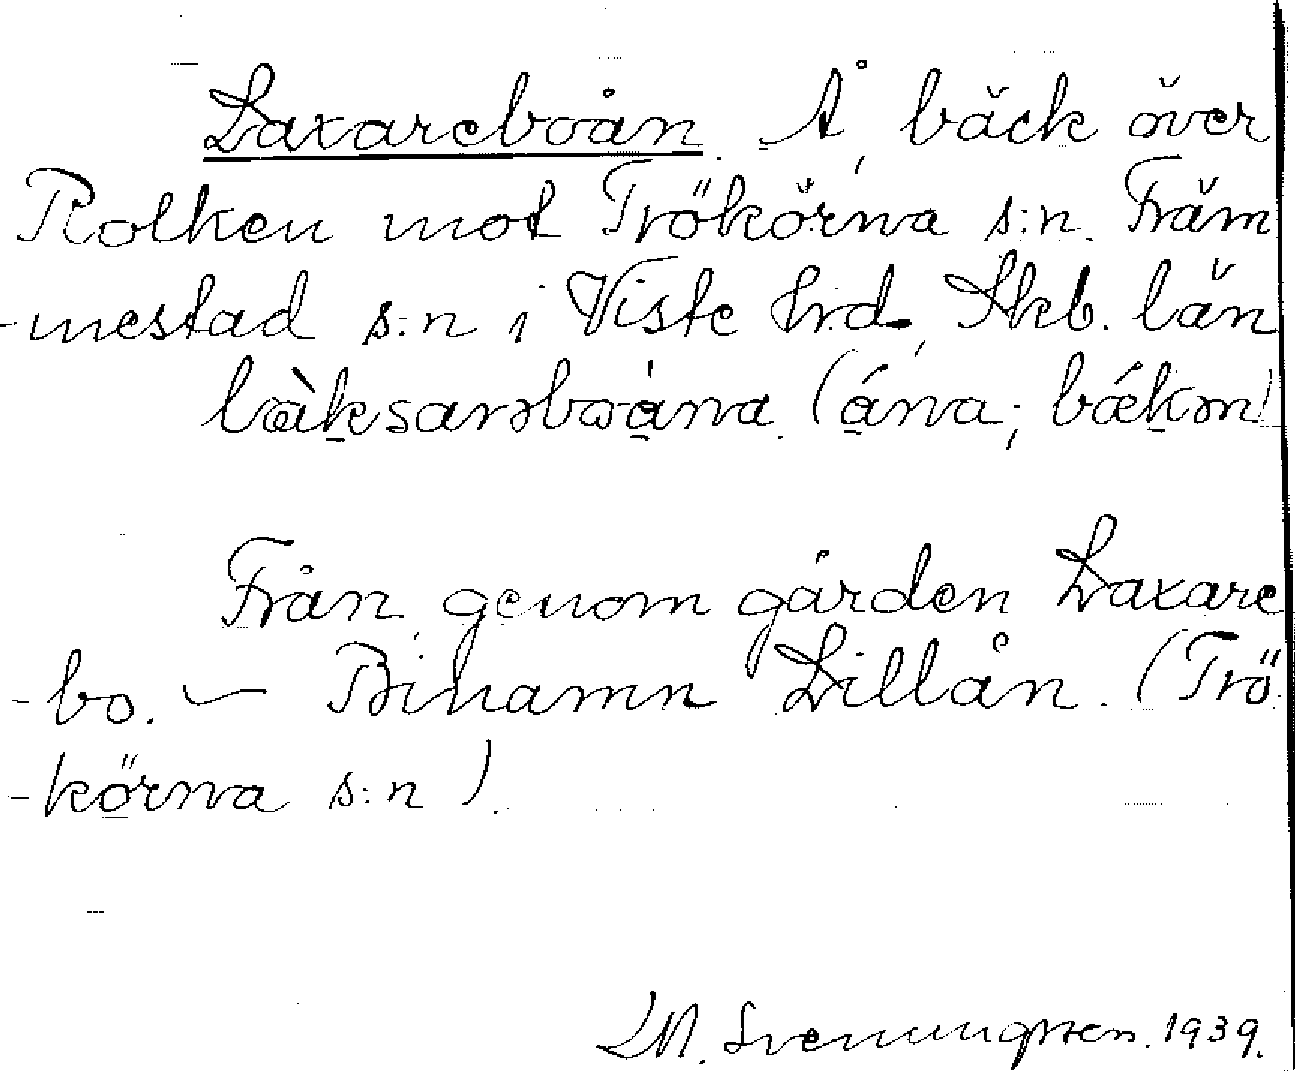 Laxareboån. Å, bäck över
Rolken mot Trökörna s:n. Främ
-mestad s:n i Viste hrd, Skb. län
làksarəboána. (ána; bǽkən)
Från genom gården Laxare
-bo. — Binamn Lillån. (Trö
-körna s:n).
Svenungsson. 1939.